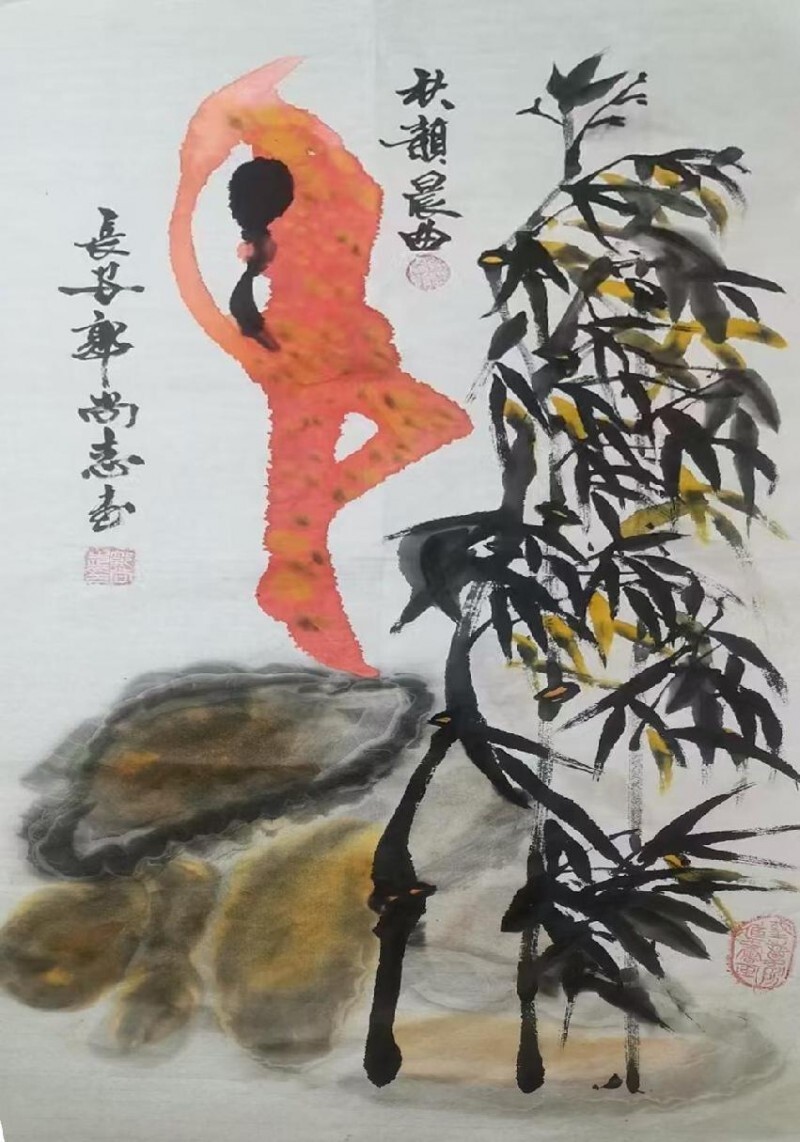 秋韻晨曲
長安郭尚志书